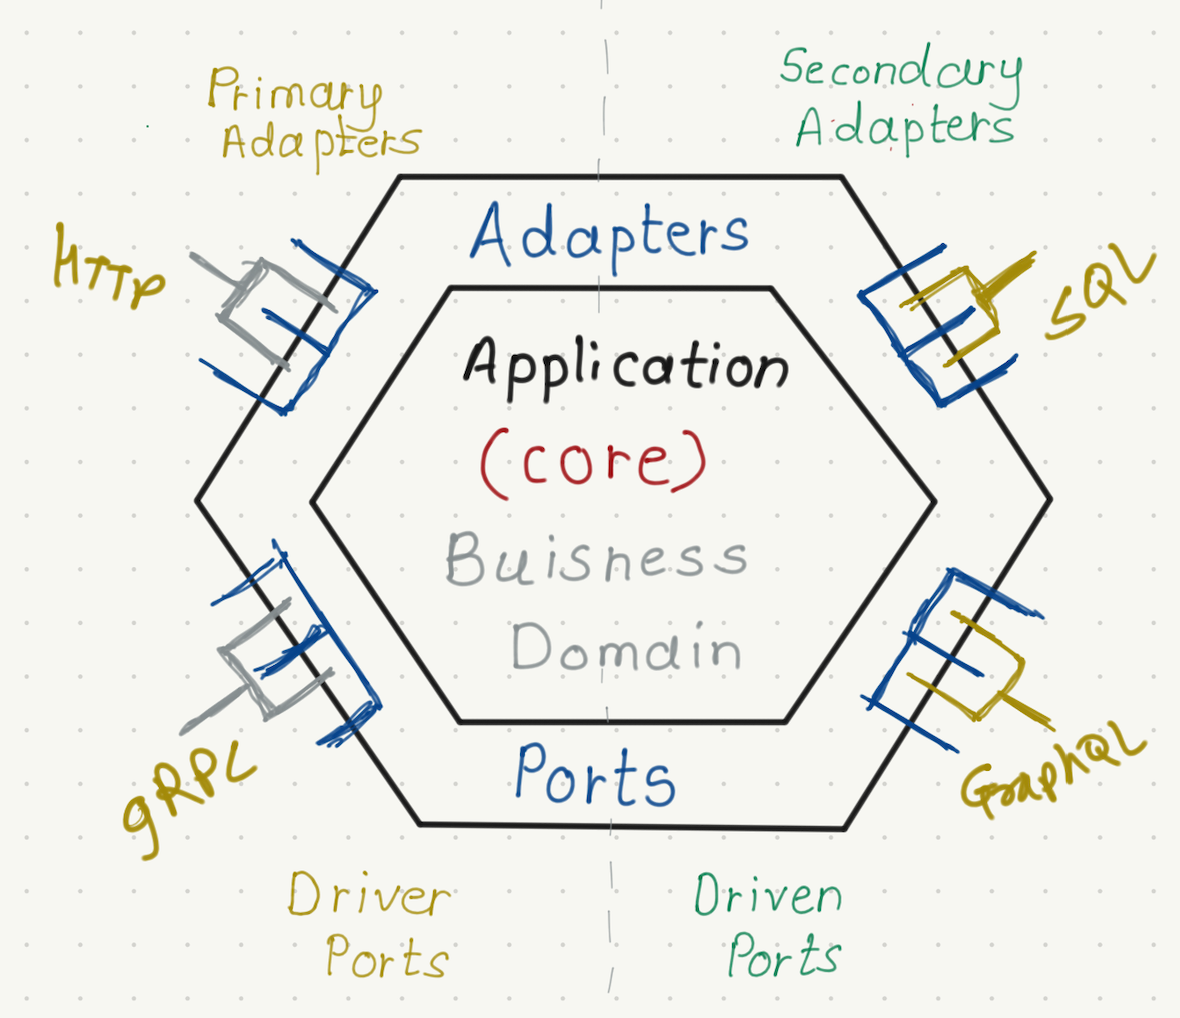 Primary
Adapters
Secondary
Adapters
HTTP
Adapters
SQL
Application
(core)
Buisness
Domain
gRPC
Ports
GraphQL
Driver
Ports
Driven
Ports